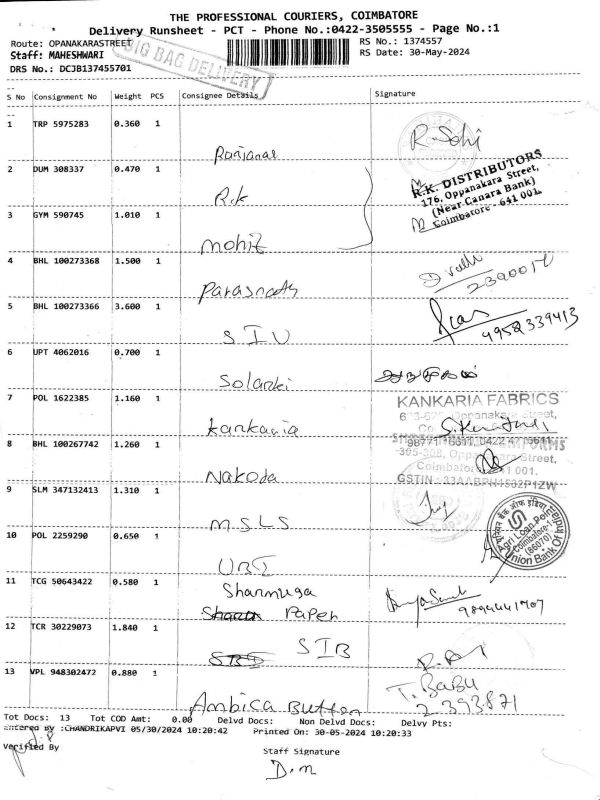 THE PROFESSIONAL COURIERS, COIMBATORE
Delivery Runsheet - PCT - Phone No.:0422-3505555 - Page No.:1
Route: OPANAKARASTREET RS No.: 1374557
Staff: MAHESHWARI RS Date: 30-May-2024
DRS No.: DCJB137455701
BIG BAG DELIVERY
S No Consignment No Weight PCS Consignee Details Signature
1 TRP 5975283 0.360 1
Ranjanas R. Sohi
2 DUM 308337 0.470 1
R.K
R.K. DISTRIBUTORS
176, Oppanakara Street,
(Near Canara Bank)
Coimbatore - 641 001.
3 GYM 590745 1.010 1
mohit
4 BHL 100273368 1.500 1
Parasnath
2390017
5 BHL 100273366 3.600 1
SIU
4952339413
6 UPT 4062016 0.700 1
Solanki
7 POL 1622385 1.160 1
KANKARIA FABRICS
Oppanakara Street,
kankaria
8 BHL 100267742 1.260 1
98771 16611, 0422 4276611
395-308, Oppa Street,
Coimbatore 641 001.
Nakoda
GSTIN : 33AABPH1532P1ZW
9 SLM 347132413 1.310 1
M.S.L.S
10 POL 2259290 0.650 1
UBI
Agri Loan Point
Coimbatore-1
(86070)
Union Bank Of India
11 TCG 50643422 0.580 1
Shanmuga
Papen
9894441707
12 TCR 30229073 1.840 1
SIB
13 VPL 948302472 0.880 1
Ambica Button
T. BABU
2393871
Tot Docs: 13 Tot COD Amt: 0.00 Delvd Docs: Non Delvd Docs: Delvy Pts:
Entered By :CHANDRIKAPVI 05/30/2024 10:20:42 Printed On: 30-05-2024 10:20:33
Verified By Staff Signature
D.m